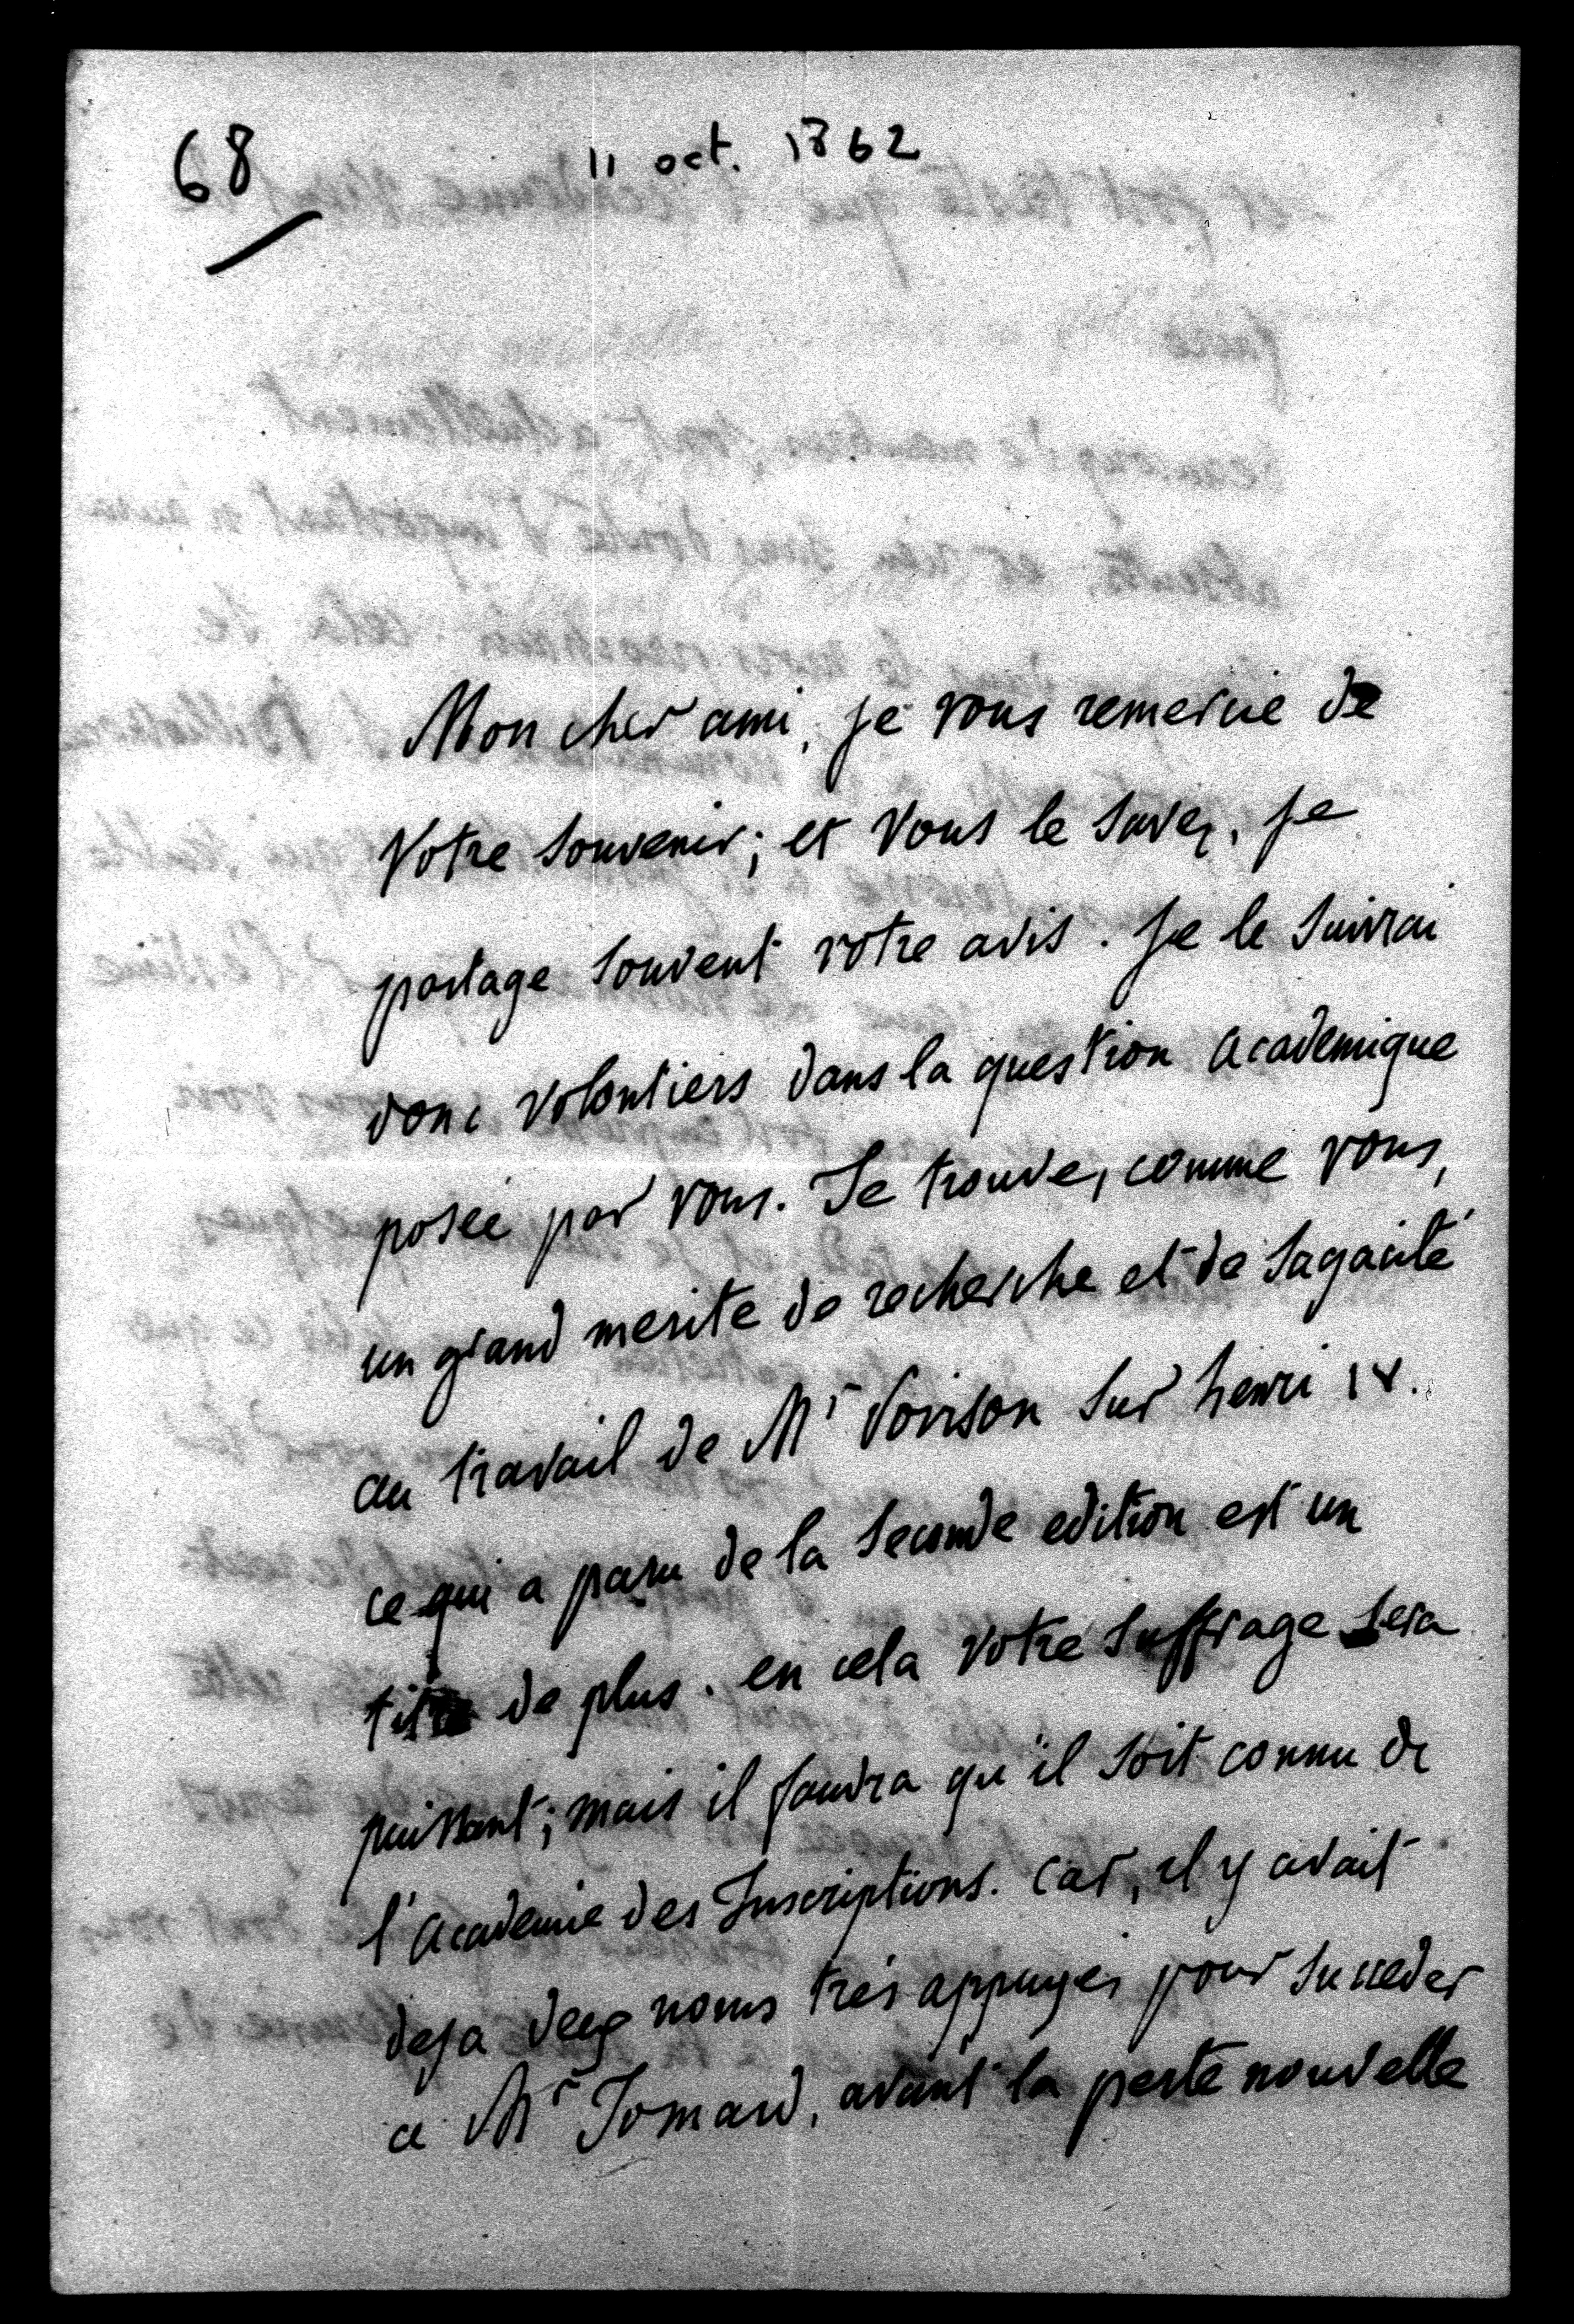 68
11 oct. 1862
Mon cher ami, je vous remercie de
votre souvenir; et vous le savez, je
partage souvent votre avis. Je le suivrai
donc volontiers dans la question academique
posée par vous. Je trouve, comme vous,
un grand merite de recherche et de sagacité
au travail de Mr Poirson sur henri IV.
ce qui a paru de la seconde edition est un
titre de plus. en cela votre suffrage sera
puissant; mais il faudra qu'il soit connu de
l'academie des Inscriptions. car, il y avait
deja deux noms très appuyés pour succeder
a Mr Jomard, avant la perte nouvelle